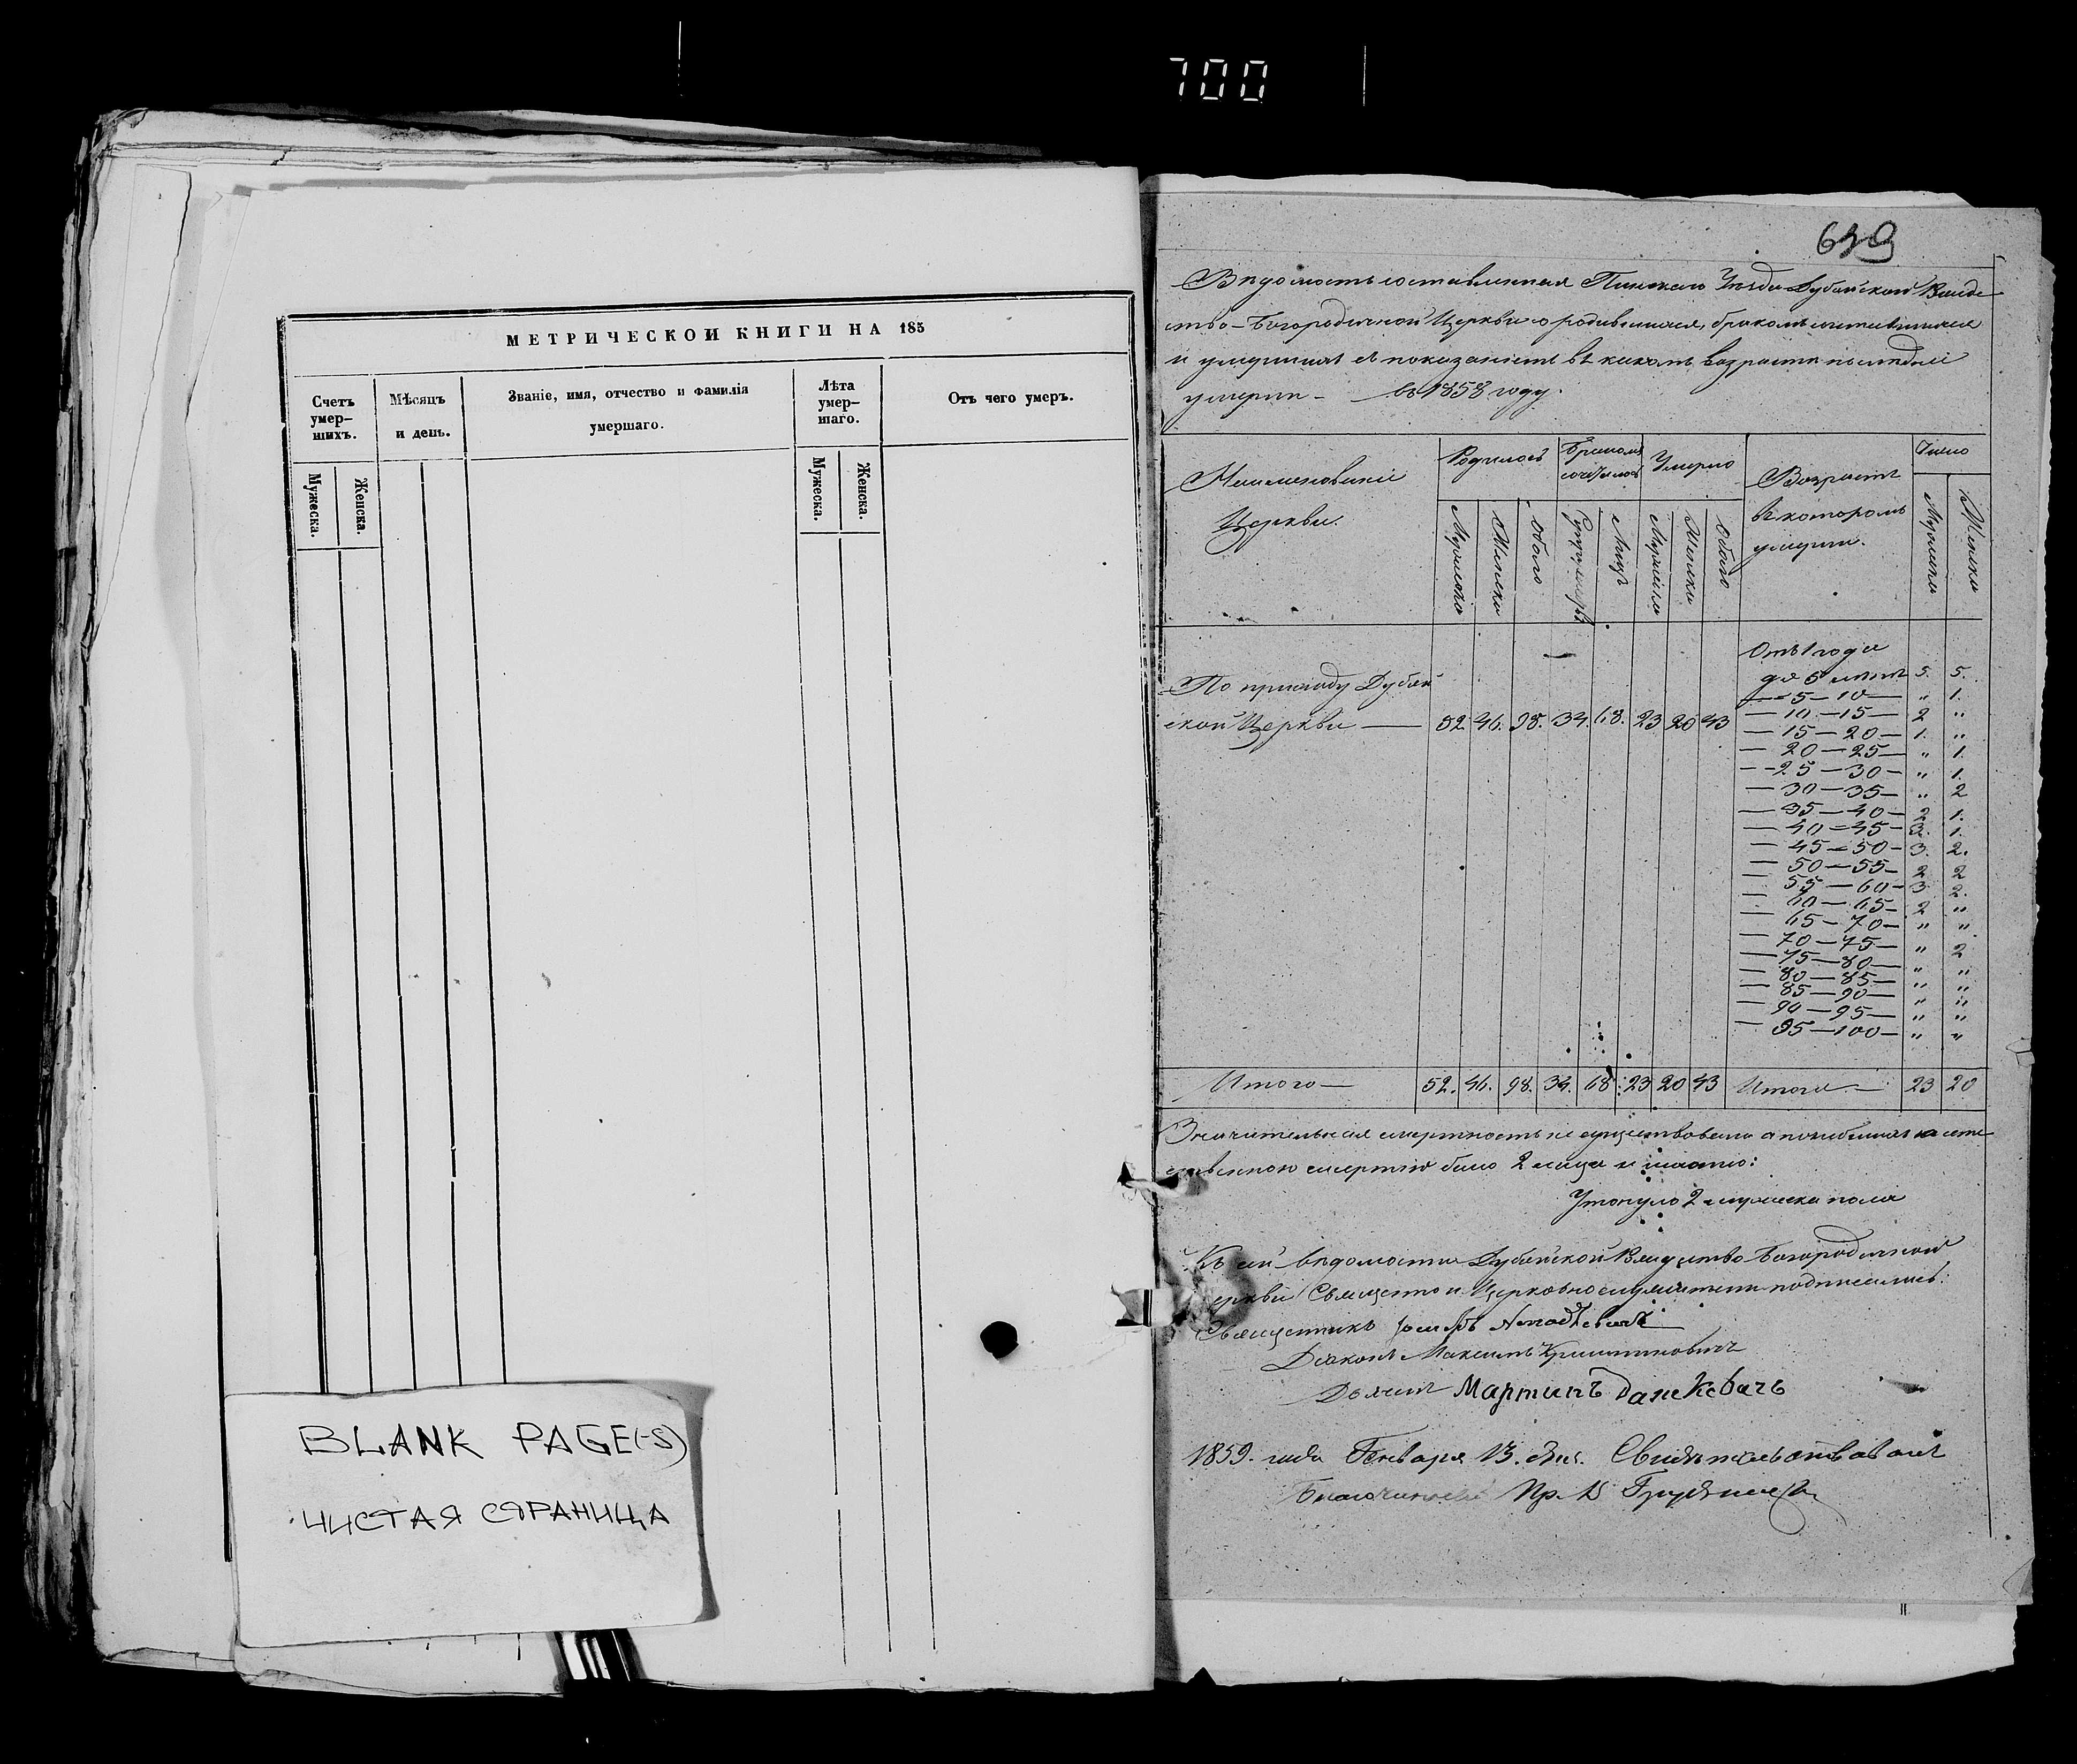 700
МЕТРИЧЕСКОЙ КНИГИ НА 185
Счетъ умер-шихъ.
Мѣсяцъ и день.
Званіе, имя, отчество и фамилія умершаго.
Лѣта умер-шаго.
Отъ чего умеръ.
Мужеска.
Женска.
Мужеска.
Женска.
BLANK PAGE(-S)
ЧИСТАЯ СТРАНИЦА
639
Вѣдомость составленная Пинскаго Уѣзда Дубойской Рожде
ство-Богородичной Церкви о родившихся, бракомъ сочетавшихся
и умершихъ съ показаніемъ въ какомъ возрастѣ послѣдніе
умерли - въ 1858 году.
Наименованіе Церкви.
Родилось
Бракомъ сочеталось
Умерло
Возрастъ въ которомъ умерли.
Число
Мужеска
Женска
Обоего
Супружествъ
Лицъ
Мужеска
Женска
Обоего
Мужеска
Женска
По приходу Дубой
ской Церкви — 52. 46. 98. 34. 68. 23 20 43
Отъ 1 года
до 5 лѣтъ 5. 5.
— 5 — 10 — " 1.
— 10 — 15 — 2 "
— 15 — 20 — 1. "
— 20 — 25 — " 1.
— 25 — 30 — " 1.
— 30 — 35 — " 2
— 35 — 40 — 2 1.
— 40 — 45 — 3. 1.
— 45 — 50 — 3. 2.
— 50 — 55 — 2 2
— 55 — 60 — 3 2.
— 60 — 65 — 2 "
— 65 — 70 — " "
— 70 — 75 — " 2
— 75 — 80 — " "
— 80 — 85 — " "
— 85 — 90 — " "
— 90 — 95 — " "
— 95 — 100 — " "
Итого — 52. 46. 98. 34. 68. 23 20 43 Итого — 23 20
Значительная смертность не существовала а погибшихъ
смертію было 2 лица и именно:
Утонуло 2 мужеска пола
Къ сей вѣдомости Дубойской Рождество-Богородичной
Церкви Священно и Церковнослужители подписались:
Священникъ Іосифъ
Діаконъ Максимъ
Дьячекъ Мартинъ Данкевичъ
1859. года Января 13. дня. Свидѣтельствовалъ
Благочинный Пр.